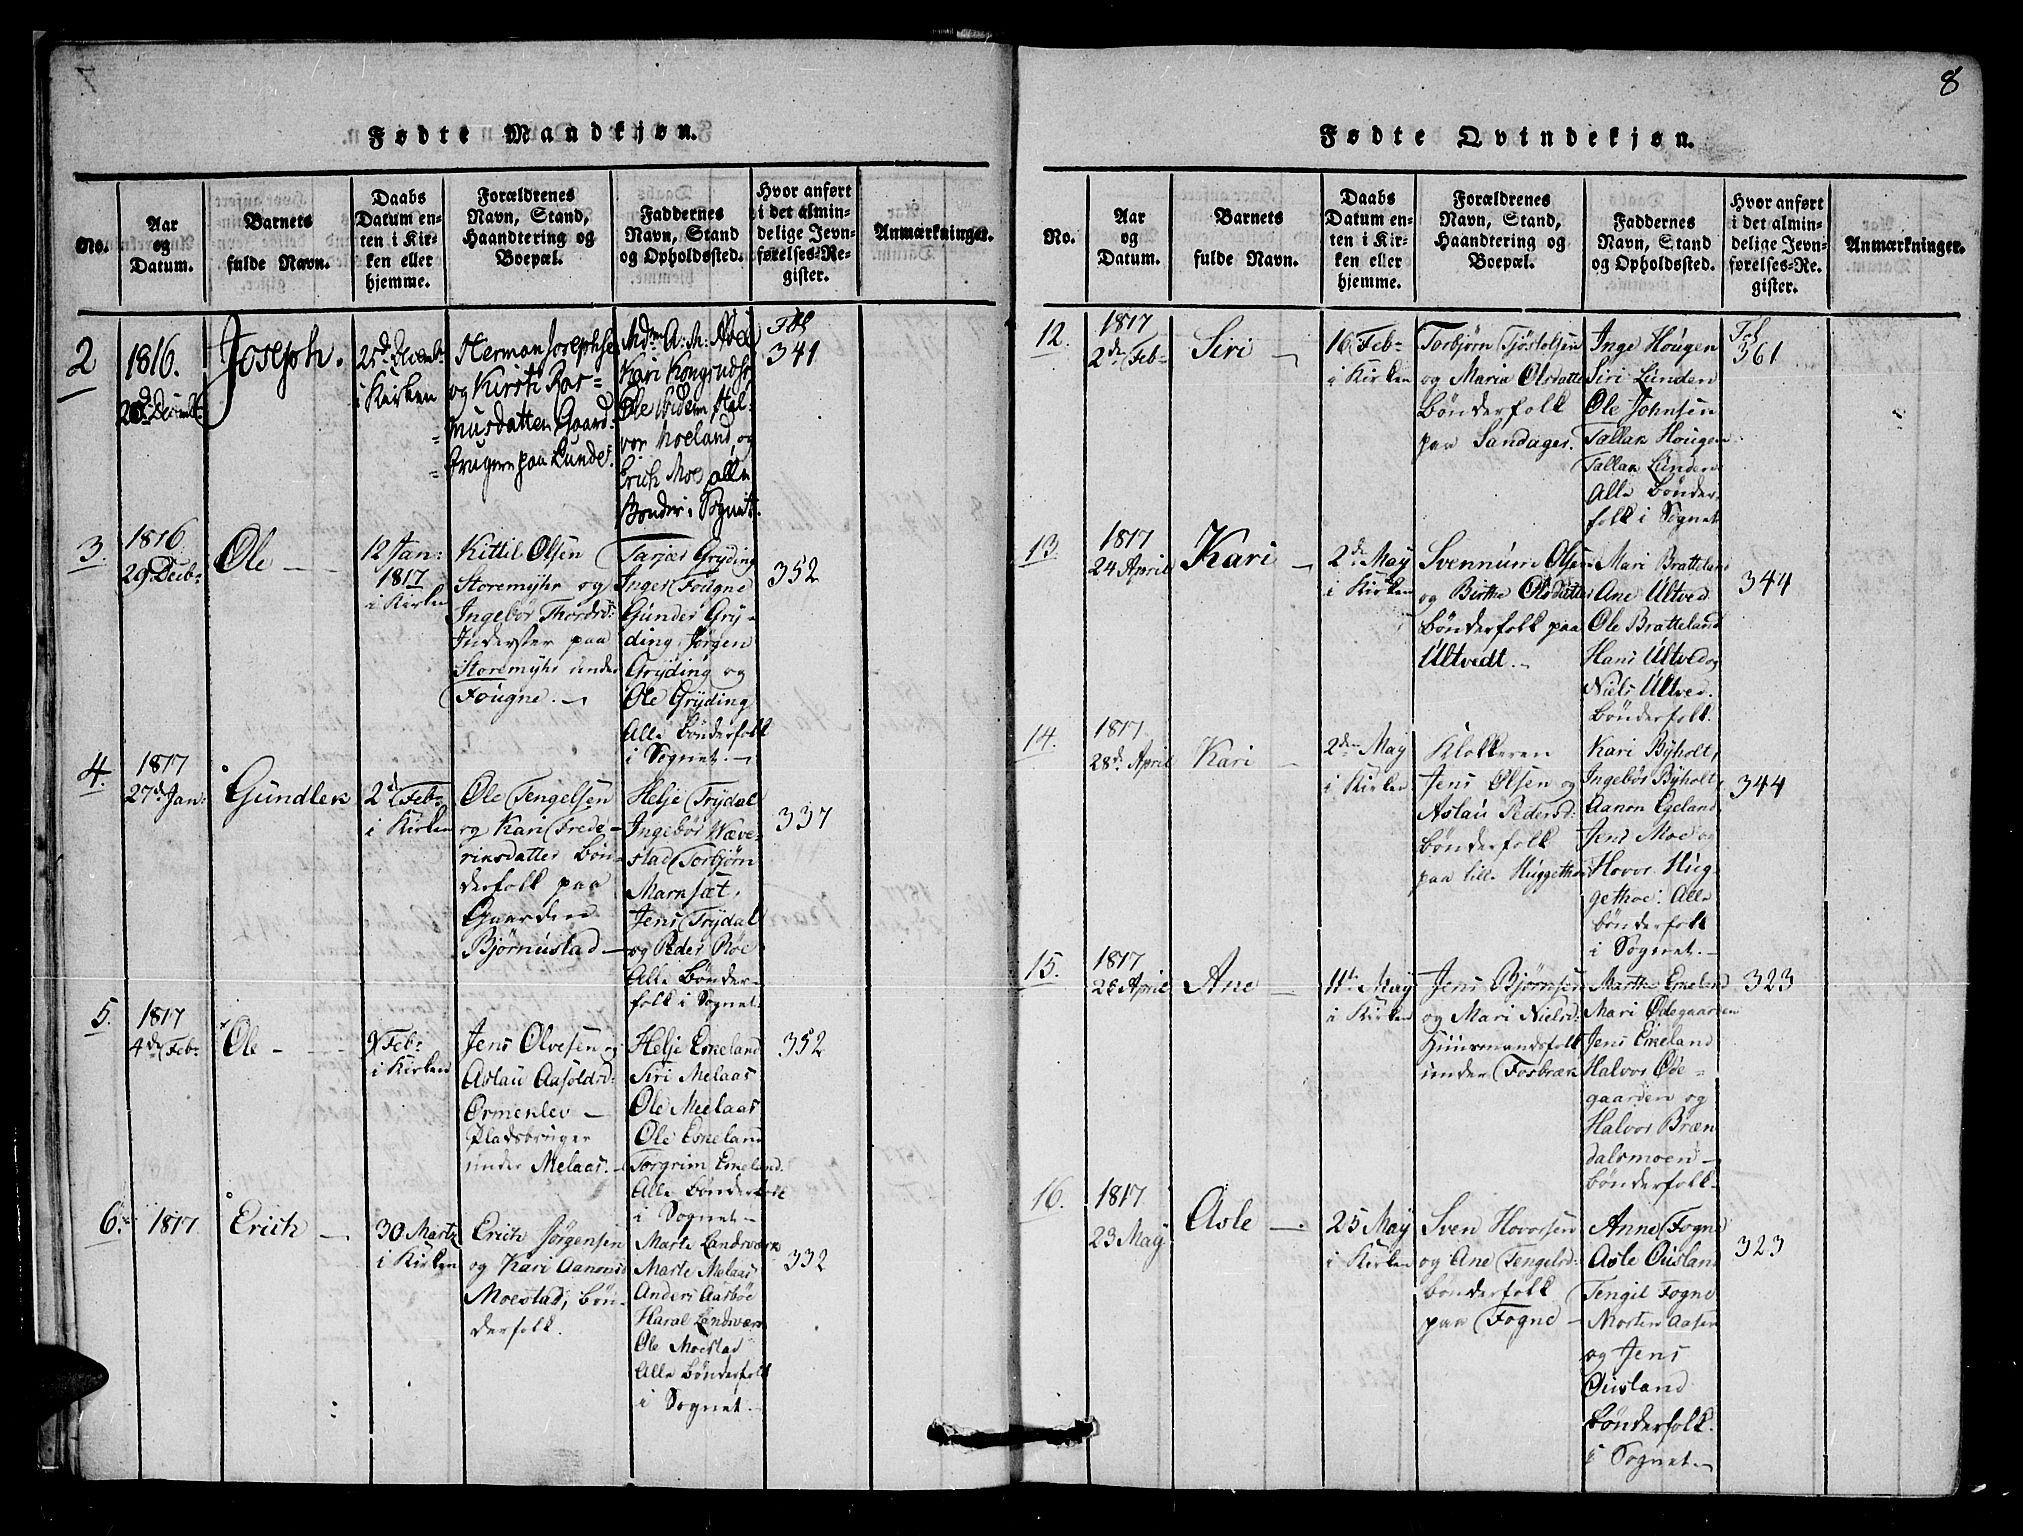 8
Fødte Mandkjøn.
No.
Aar
og
Datum.
Barnets
fulde Navn.
Daabs
Datum en-
ten i Kir-
ken eller
hjemme.
Forældrenes
Navn, Stand,
Haandtering og
Boepæl.
Faddernes
Navn, Stand
og Opholdssted.
Hvor anført
i det almin-
delige Jevn-
førelses-Re-
gister.
Anmærkninger.
2
1816.
Joseph.
i Kirken
Herman Josephse
og Kirsti Ras-
musdatter Gaard-
brugere paa Lunde.
Mdm A: M:
Kari Kongrudh
Ole Widem Hal-
vor Moeland og
Erich Moe alle
Bønder i Sognet.
Fol
341
3.
1816
29 Decbr
Ole
12 Jan:
1817
i Kirken
Kittil Olsen
Storemyhr og
Ingebor Thordsd:
Inderster paa
Storemyhr under
Fougne.
Tarjer Gryding
Inger Fougne
Gunder Gry-
ding, Jørgen
Gryding og
Ole Gryding
Alle bønderfolk
i Sognet.
352
4.
1817
27de Jan:
Gundlek
2d Feb:
i Kirken
Ole Tengelsen
og Kari Frede-
riksdatter bøn-
derfolk paa
Gaarden
Bjørnustad
Helje Trydal
Ingebor Wæve-
stad Torbjørn
Marksæt,
Jens Trydal
og Peder Roe
Alle bønder-
folk i Sognet.
337
5.
1817
4de Feb:
Ole
9 Feb:
i Kirken
Jens Olvesen og
Aslau Aasoldsd:
Ormeklev
Pladsbruger
under Melaas.
Helje Eskeland
Siri Melaas
Ole Meelaas
Ole Eskeland
Torgrim Eskeland
Alle bønderfolk
i Sognet
352
6.
1817
Erich
30 Marts
i Kirken
Erich Jørgensen
og Kari Aanonsd
Moestad, bøn-
derfolk.
Marte Landsværk
Marte Melaas
Anders Aasbøe
Haral Landsværk
Ole Moestad
Alle bønderfolk
i Sognet.
332
Fødte Qvindekjøn.
No.
Aar
og
Datum.
Barnets
fulde Navn.
Daabs
Datum en-
ten i Kir-
ken eller
hjemme.
Forældrenes
Navn, Stand,
Haandtering og
Boepæl.
Faddernes
Navn, Stand
og Opholdssted.
Hvor anført
i det almin-
delige Jevn-
førelses-Re-
gister.
Anmærkninger.
12.
1817
2den Feb:
Siri
16 Feb:
i Kirken
Torbjørn Tjøstolsen
og Maria Olsdatte
bønderfolk
paa Sandager.
Inge Hougen
Siri Lunden
Ole Johnsen
Tallak Hougen
Tallak Lunden
Alle bønder-
folk i Sognet
Fol
361
13.
1817
24 April
Kari
2de May
i Kirken
Svennum Olsen
og Birthe Olsdatter
bønderfolk paa
Ultvedt.
Mari Bratteland
Ane Ultved
Ole Bratteland
Hans Ultved og
Niels Ultved.
bønderfolk.
344
14.
1817
28d April
Kari
2den May
i Kirken
Klokkeren
Jens Olsen og
Aslau Pedersd:
bønderfolk
paa lille Huggethoe
Kari Byholt,
Ingebor Byholt,
Aanon Egeland,
Jens Moe og
Hovor Hug-
gethoe: Alle
bønderfolk
i Sognet.
344
15.
1817
26 April
Ane
11te May
i Kirken
Jens Bjørnsen
og Mari Nielsd:
Huusmandsfolk
under Fosbræk
Marthe Eskeland
Mari Ødegaarden
Jens Eskeland
Halvor Øde-
gaarden og
Halvor Bræn
dalsmoen
bønderfolk
323
16.
1817
23 May
Asle
25 May
i Kirken
Sven Hovorsen
og Ane Tengelsd:
bønderfolk
paa Fogne
Anne Fogne
Asle Ousland
Tengil Fogne
Morten Aasen
og Jens
Ousland
bønderfolk.
i Sognet.
323